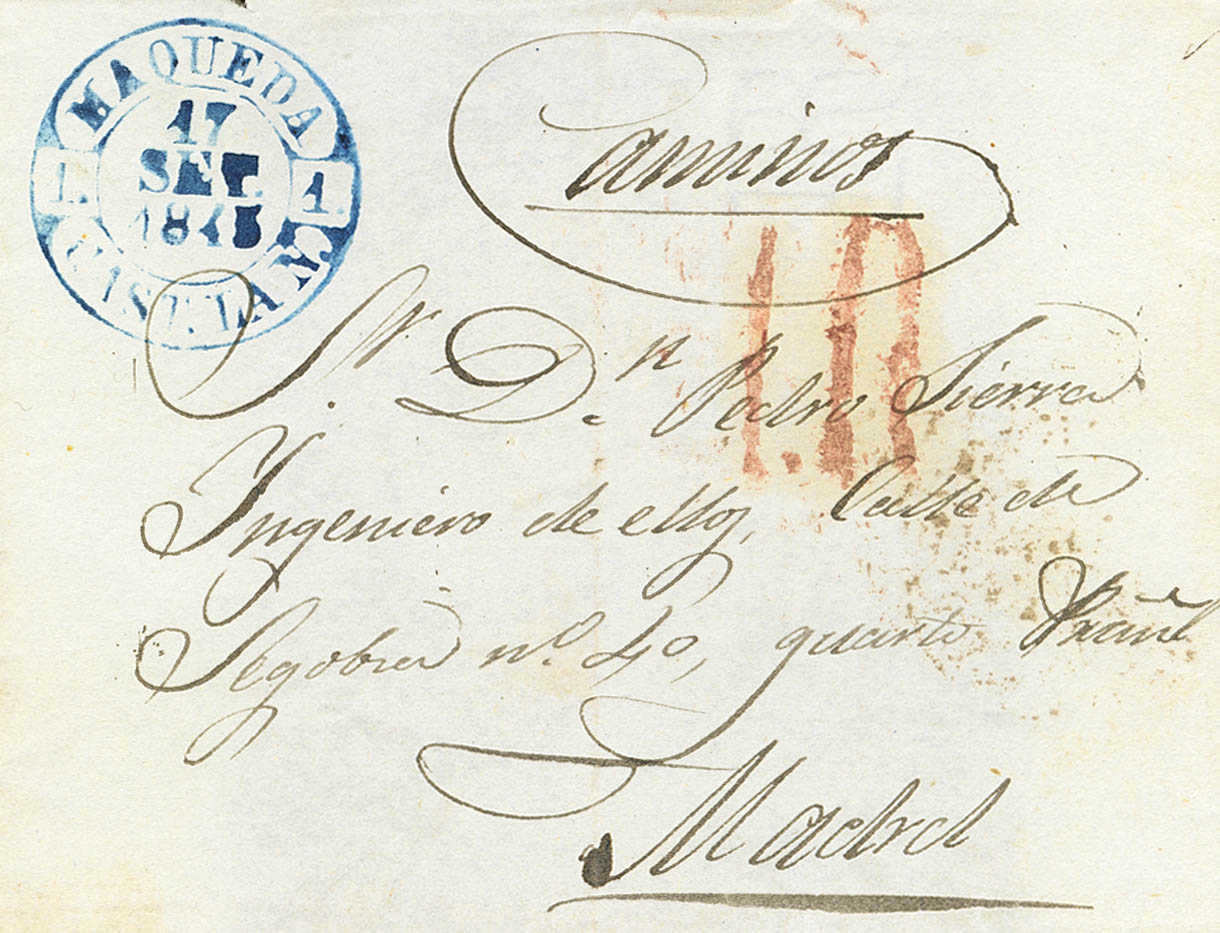 MAQUEDA
17
SET.
1845
1. 1.
CAST. LA N.
Caminos
Sr. Dn. Pedro Sierra
Ingeniero de ellos, Calle de
Segobia nº. 40, quarto
Madrid